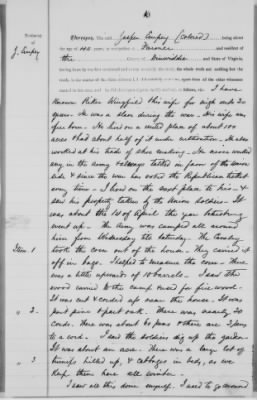 Testimony
of
J. Curpey
Thereupon, The said Jasper Curpey (Colored) being about
the age of 42 years, a occupation of Farmer and resident of
the County of Dinwiddie and State of Virginia,
the whole truth and nothing but the
I have
known Peter Wingfield & his wife for nigh onto 20
years. He was a slave during the war. His wife was
free born. He lived on a rented place of about 100
acres that had about half of it under cultivation. He also
worked at his trade of shoe making. He never worked
any in the army & always talked in favor of the union
side & since the war has voted the Republican ticket
every time. I lived on the next place to his & I
saw his property taken by the Union soldiers. It
was about the 1st of April the year Petersburg
went up. The Army was camped all around
him from Wednesday till Saturday. The Cavalry
Item 1 took the corn out of the house. They carried it
off in bags. I helped to measure the corn. There
was a little upwards of 10 barrels. I saw the
wood carried to the camp & used for fire wood.
It was cut & corded up near the house. It was
" 2 part pine & part oak. There was nearly 20
cords. There was about 60 panes & there are 3 panes
to a cord. I saw the soldiers dig up the garden.
It was about an acre. There was a large lot of
" 3 turnips hilled up, & cabbages in beds, as we
keep them here all winter.
I saw all this done myself. I used to go around